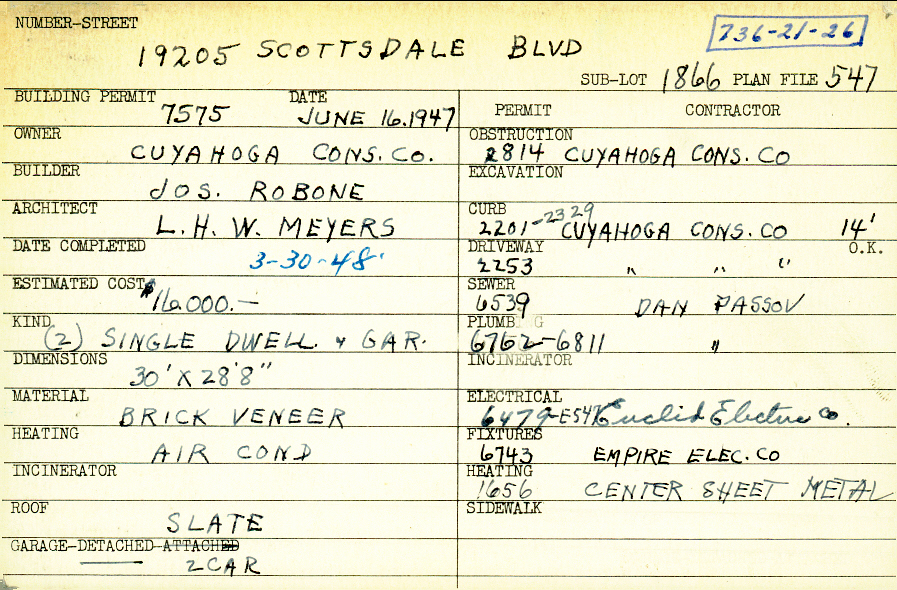 NUMBER-STREET
19205 SCOTTSDALE BLVD
736-21-26
SUB-LOT 1866 PLAN FILE 547
BUILDING PERMIT 7575 DATE JUNE 16.1947
OWNER CUYAHOGA CONS. CO.
BUILDER JOS. ROBONE
ARCHITECT L. H. W. MEYERS
DATE COMPLETED 3-30-48
ESTIMATED COST $16,000.—
KIND (2) SINGLE DWELL. & GAR.
DIMENSIONS 30' X 28'8"
MATERIAL BRICK VENEER
HEATING AIR COND
INCINERATOR
ROOF SLATE
GARAGE-DETACHED-ATTACHED
2 CAR
PERMIT CONTRACTOR
OBSTRUCTION 2814 CUYAHOGA CONS. CO
EXCAVATION
CURB 2201-2329 CUYAHOGA CONS. CO 14'
O.K.
DRIVEWAY 2253 " " "
SEWER 6539 DAN PASSOV
PLUMB G 6762-6811 "
INCINERATOR
ELECTRICAL 6479- Euclid Electric Co.
FIXTURES 6743 EMPIRE ELEC. CO
HEATING 1656 CENTER SHEET METAL
SIDEWALK